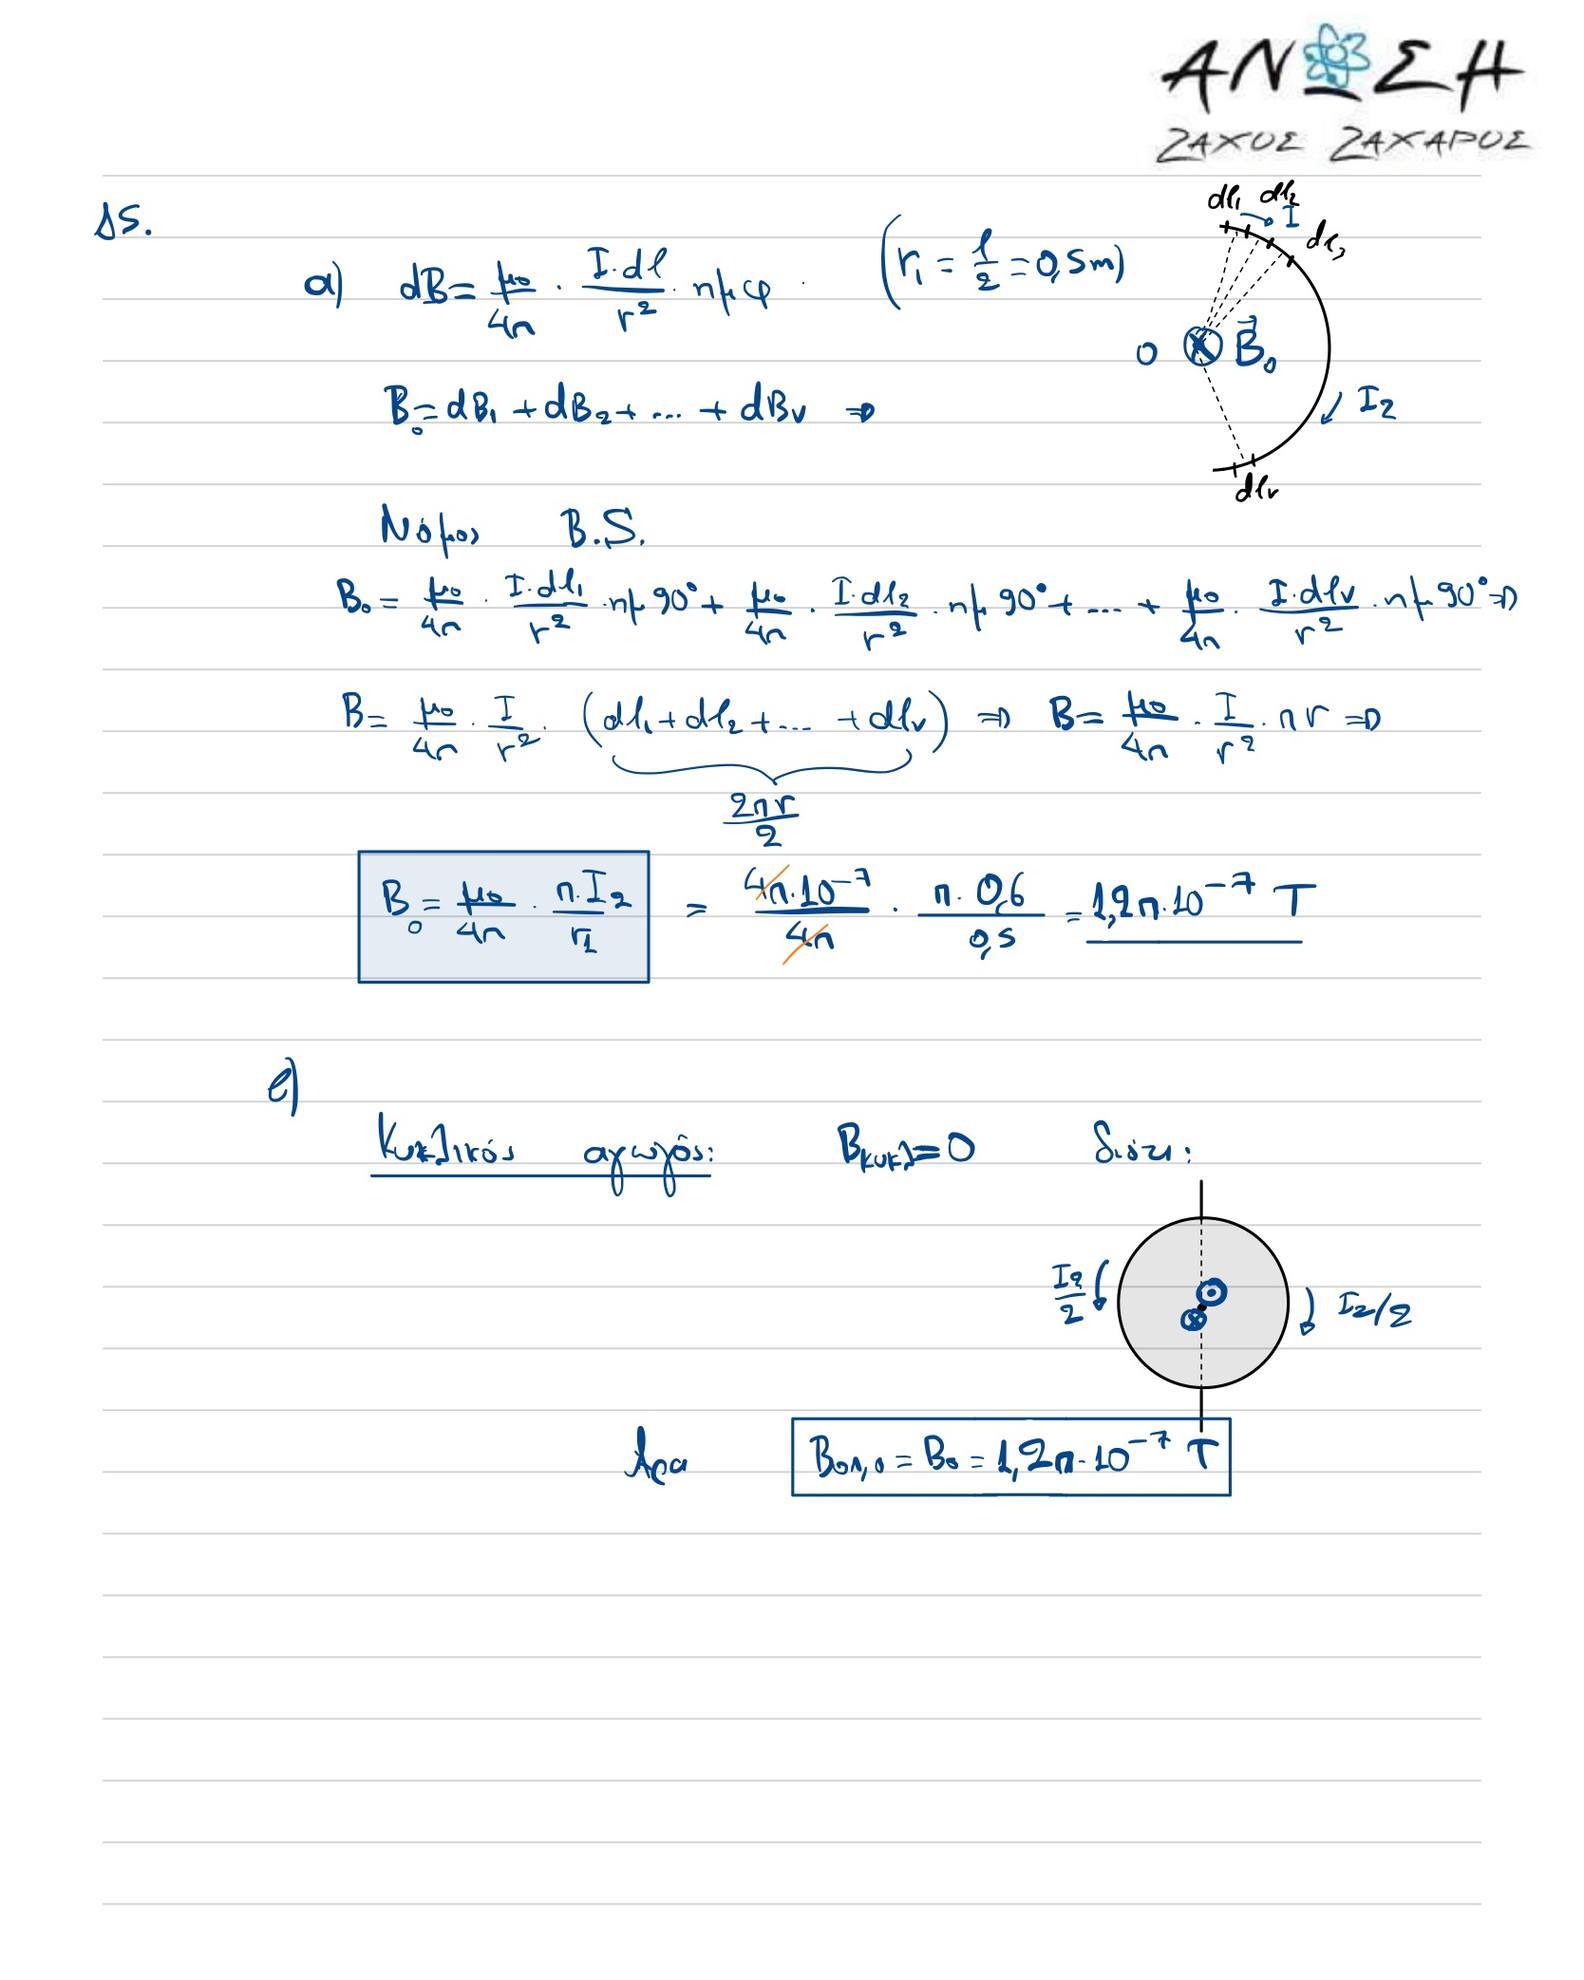 ΑΝΩΣΗ
ΖΑΧΟΣ ΖΑΧΑΡΟΣ
Δ5.
α) dB = μ₀/4π · I·dl/r² · ημφ (r₁ = l/2 = 0,5m)
dl₁ dl₂ I dl₃
O B⃗₀
I₂
dlᵥ
B₀ = dB₁ + dB₂ + ... + dBᵥ ⇒
Νόμος B.S.
B₀ = μ₀/4π · I·dl₁/r² · ημ90° + μ₀/4π · I·dl₂/r² · ημ90° + ... + μ₀/4π · I·dlᵥ/r² · ημ90° ⇒
B = μ₀/4π · I/r² · (dl₁ + dl₂ + ... + dlᵥ) ⇒ B = μ₀/4π · I/r² · πr ⇒
2πr/2
B₀ = μ₀/4π · π·I₂/r₁ = 4π·10⁻⁷/4π · π·0,6/0,5 = 1,2π·10⁻⁷ T
Κυκλικός αγωγός: Bκυκλ = 0 διότι:
I₂/2 I₂/2
Άρα Bολ,ο = B₀ = 1,2π·10⁻⁷ T